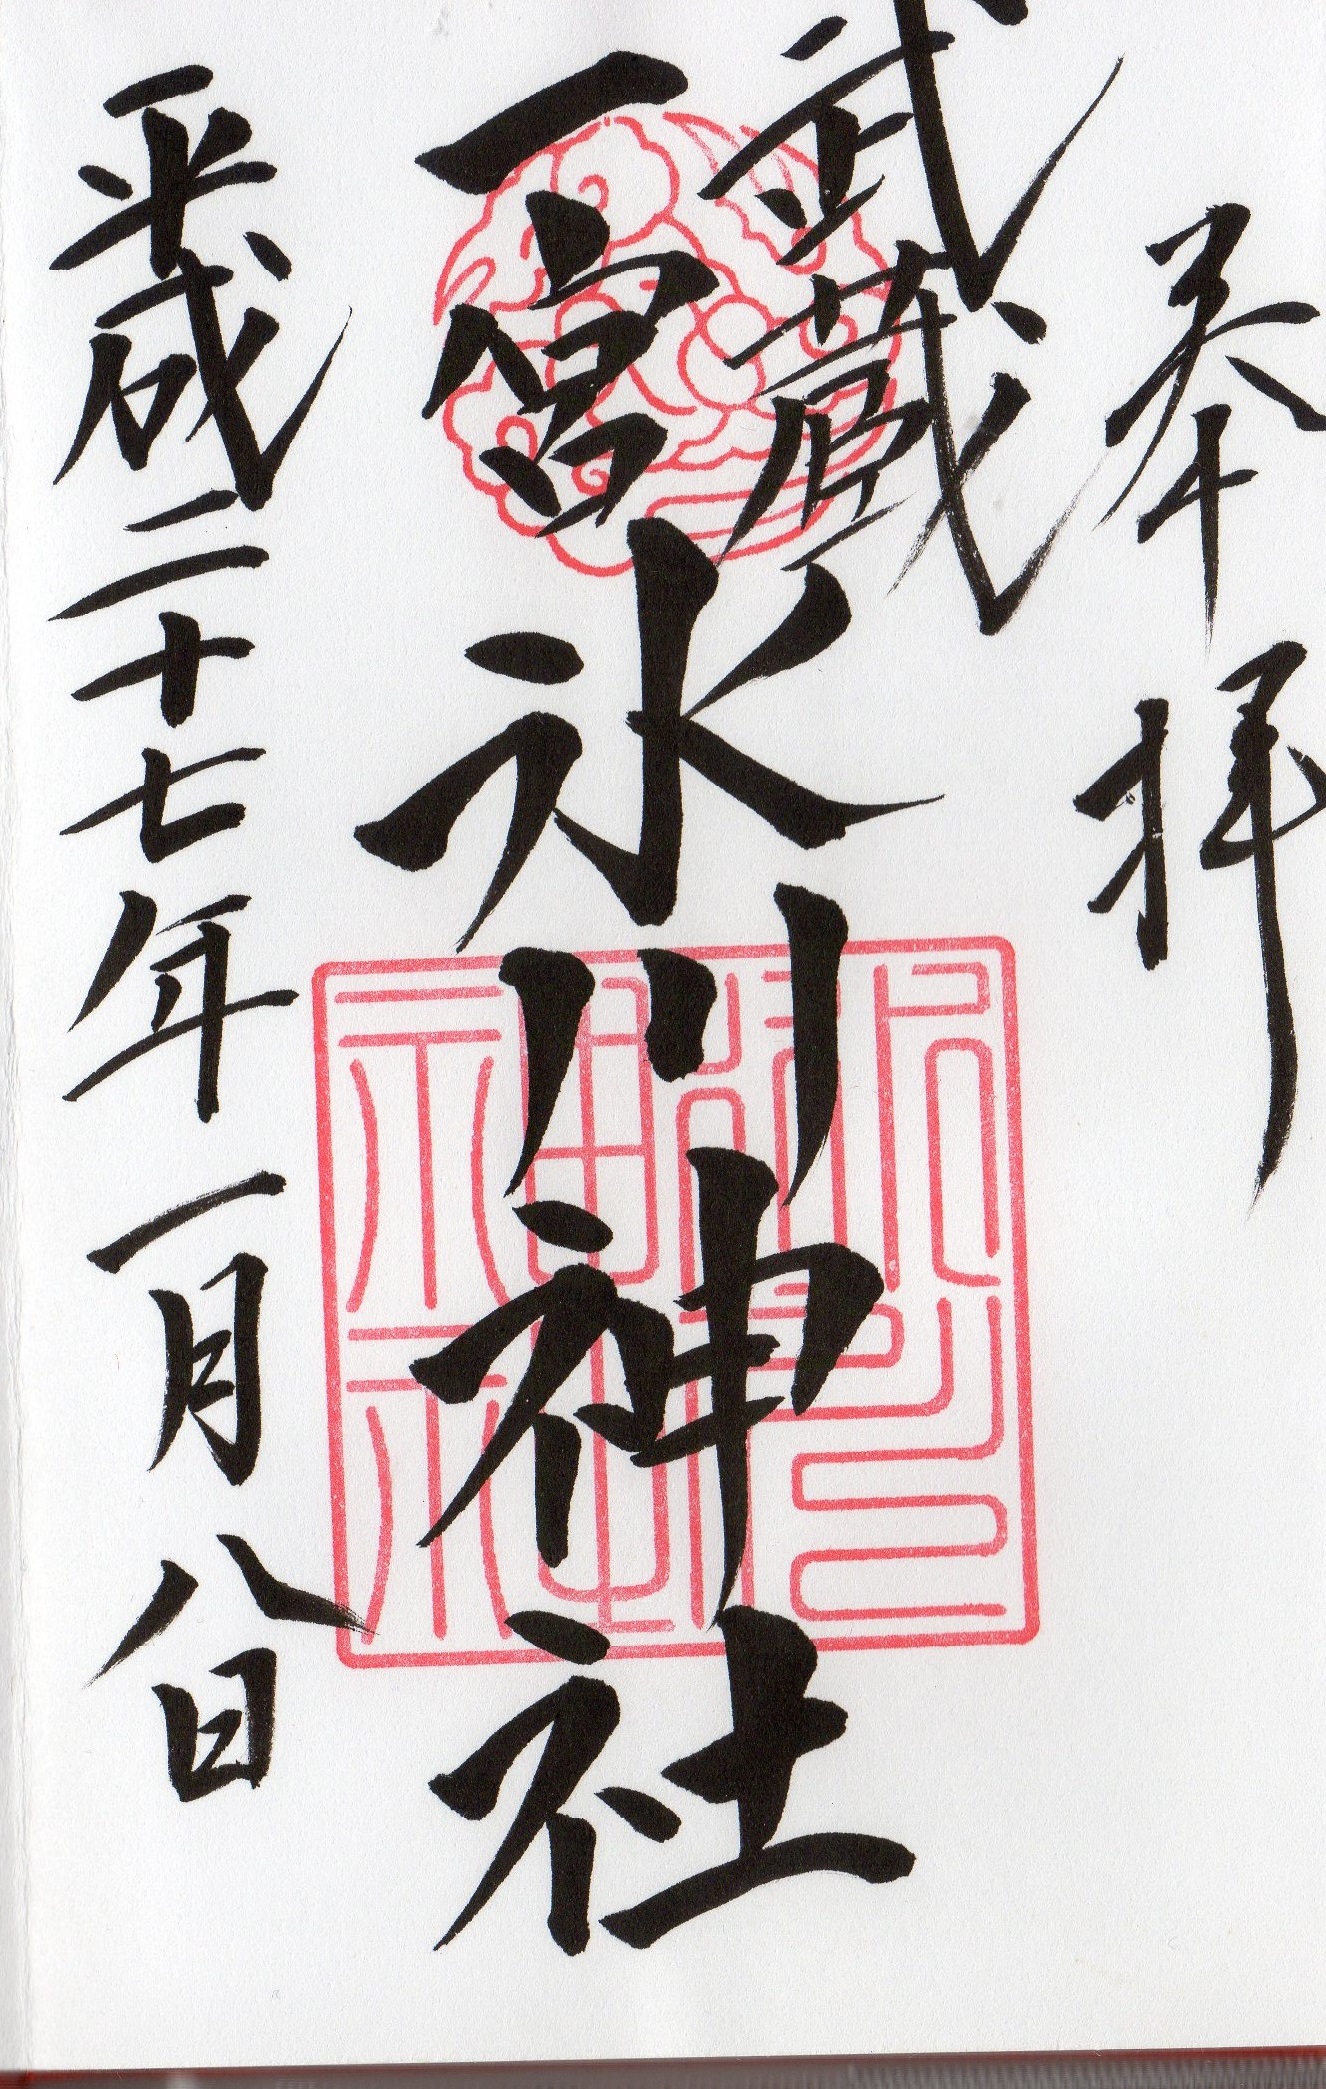 奉拝
武蔵
一宮氷川神社
平成二十七年一月八日